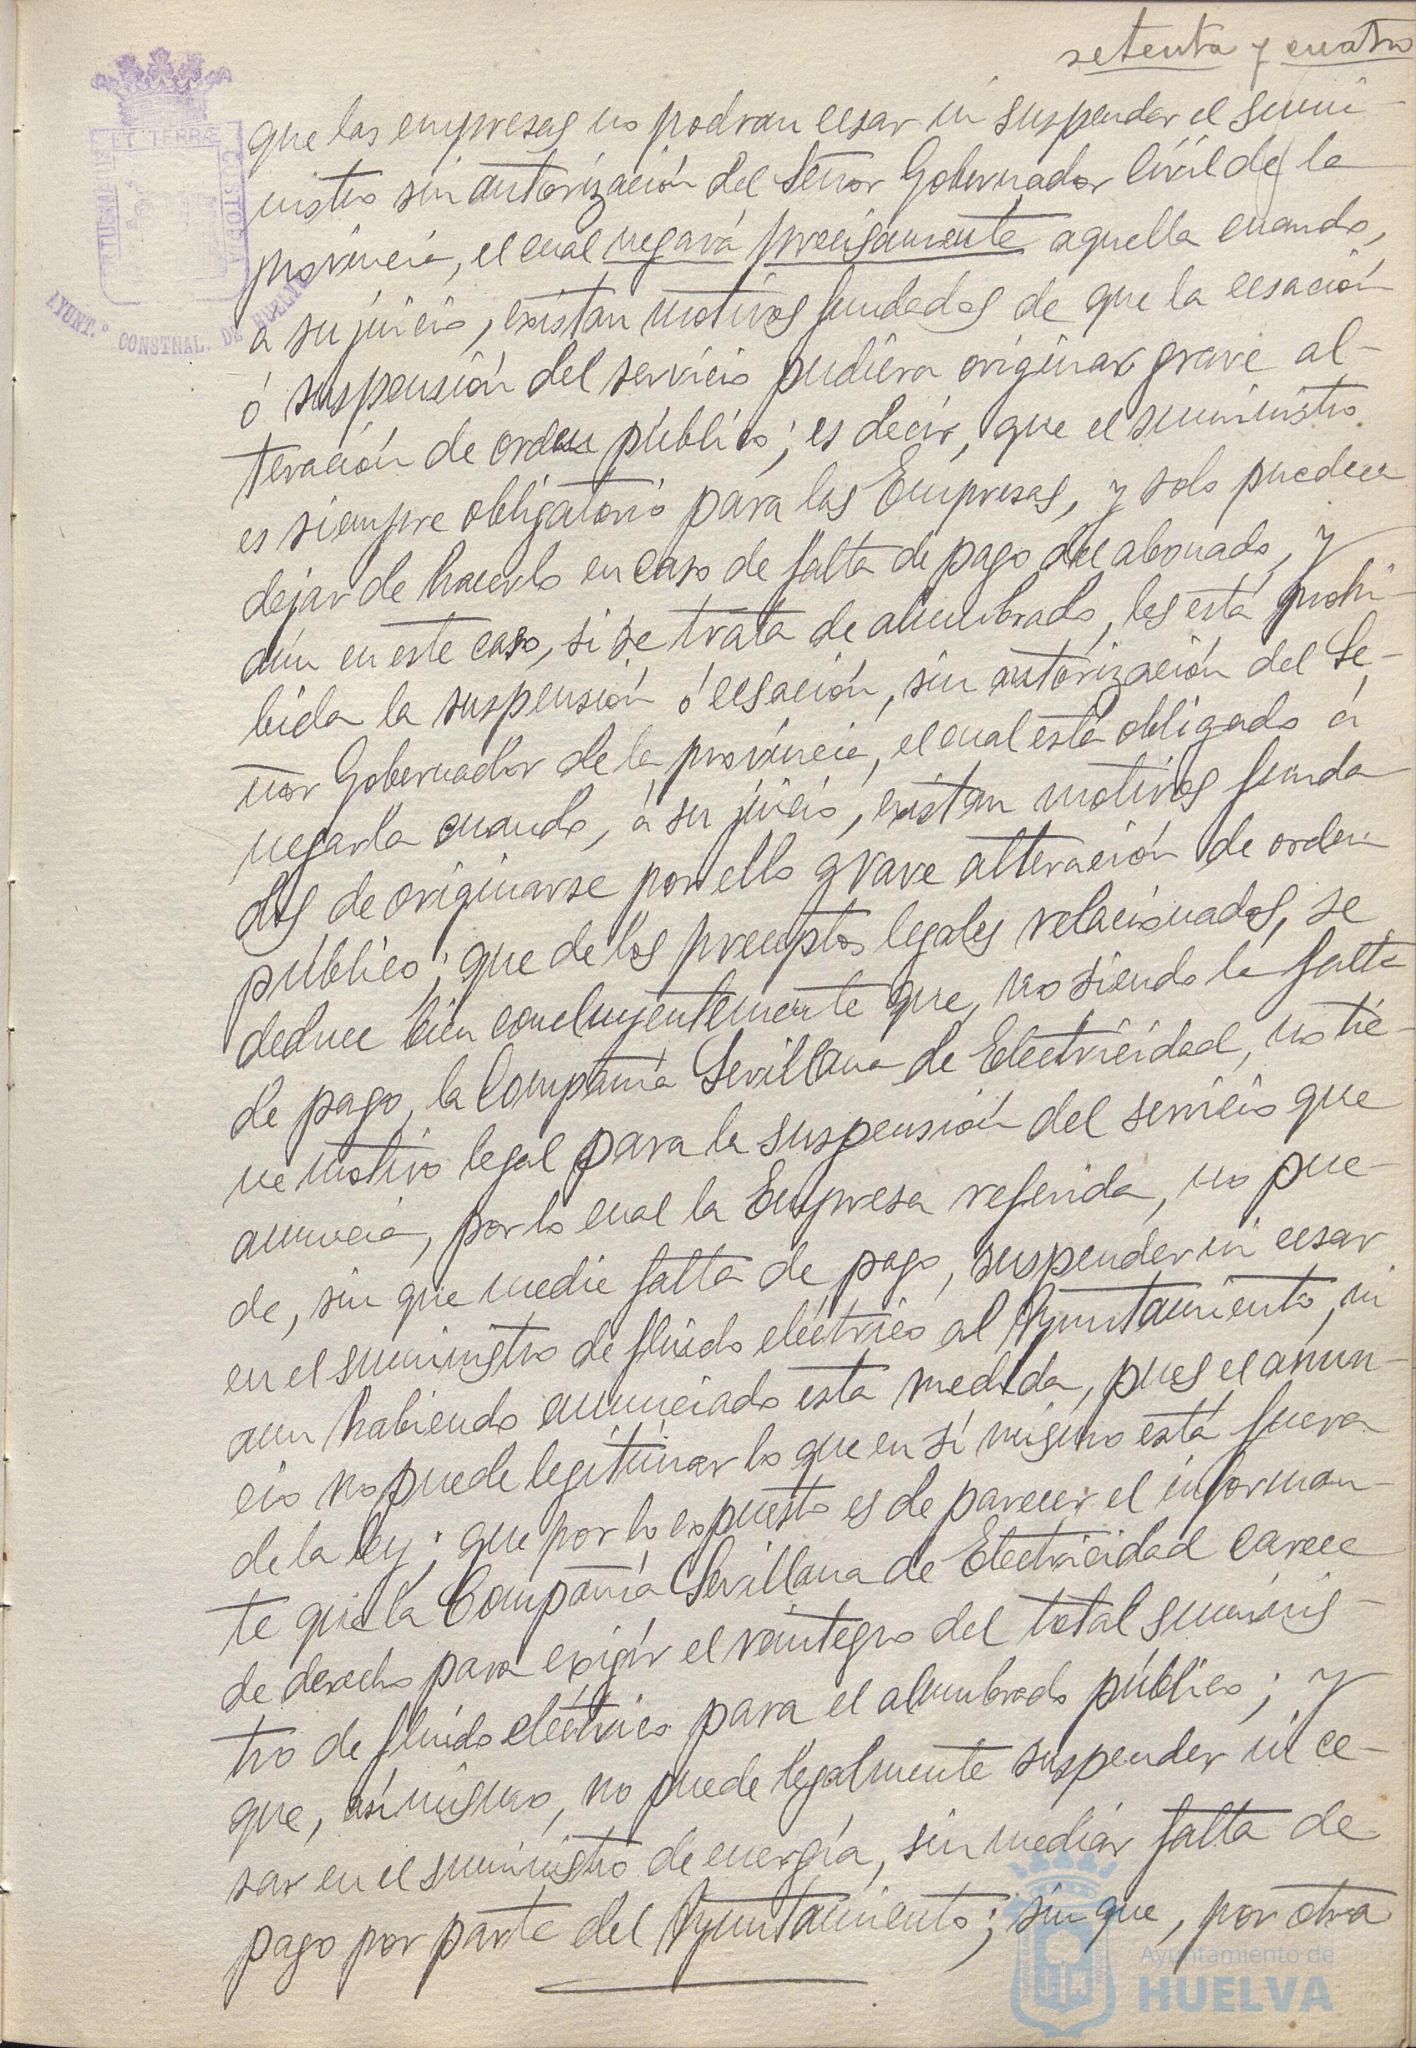 setenta y cuatro
ET TERRÆ
CUSTODIA
AYUNT.º CONSTNAL. DE HUELVA
que las empresas no podran cesar ni suspender el sumi-
nistro sin autorización del Señor Gobernador Civil de la
provincia, el cual negará precisamente aquella cuando,
á su juicio, existan motivos fundados de que la cesación
ó suspensión del servicio pudiera originar grave al-
teración de orden público; es decir, que el suministro
es siempre obligatorio para las Empresas, y solo pueden
dejar de hacerlo en caso de falta de pago del abonado, y
aún en este caso, si se trata de alumbrado, les está prohi-
bida la suspensión ó cesación, sin autorización del Se-
ñor Gobernador de la provincia, el cual está obligado á
negarla cuando, á su juicio, existan motivos funda-
dos de originarse por ello grave alteración de orden
público; que de los preceptos legales relacionados, se
deduce bien concluyentemente que, no siendo la falta
de pago, la Compañía Sevillana de Electricidad, no tie-
ne motivo legal para la suspensión del servicio que
anuncia, por lo cual la Empresa referida, no pue-
de, sin que medie falta de pago, suspender ni cesar
en el suministro de fluido eléctrico al Ayuntamiento, ni
aun habiendo anunciado esta medida, pues el anun-
cio no puede legitimar lo que en sí mismo está fuera
de la ley; que por lo expuesto es de parecer el informan-
te que la Compañía Sevillana de Electricidad carece
de derecho para exigir el reintegro del total suminis-
tro de fluido eléctrico para el alumbrado público; y
que, asimismo, no puede legalmente suspender ni ce-
sar en el suministro de energía, sin mediar falta de
pago por parte del Ayuntamiento; sin que, por otra
Ayuntamiento de
HUELVA